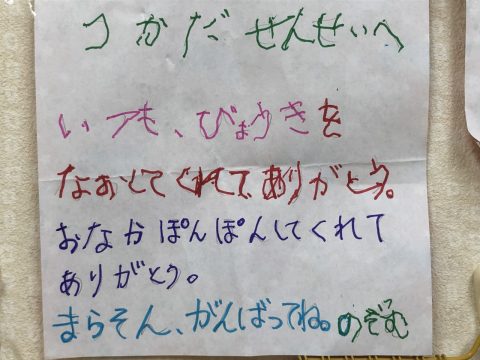 つかだ ぜんせいへ
いつも、びょうきを
なおしてくれて、ありがとう。
おなかぽんぽんしてくれて
ありがとう。
まらそん、がんばってね。のぞむ